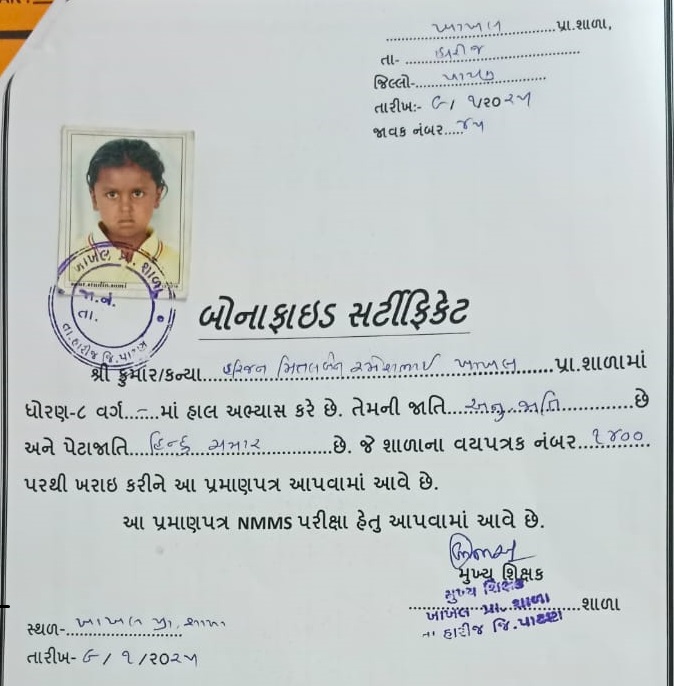 ખાખલ પ્રા.શાળા,
તા- હારીજ
જિલ્લો- પાટણ
તારીખ:- ૯/ ૧/૨૦૨૫
જાવક નંબર.....૪૫
ખાખલ પ્રા. શાળા
જા.નં.
તા.
તા.હારીજ જિ.પાટણ
બોનાફાઇડ સર્ટીફિકેટ
શ્રી કુમાર/કન્યા...હરિજન મિતલબેન રમેશભાઈ ખાખલ.......પ્રા.શાળામાં
ધોરણ-૮ વર્ગ...-...માં હાલ અભ્યાસ કરે છે. તેમની જાતિ...અનુ.જાતિ............છે
અને પેટાજાતિ...હિન્દુ ચમાર............છે. જે શાળાના વયપત્રક નંબર...૧૪૦૦....
પરથી ખરાઇ કરીને આ પ્રમાણપત્ર આપવામાં આવે છે.
આ પ્રમાણપત્ર NMMS પરીક્ષા હેતુ આપવામાં આવે છે.
મુખ્ય શિક્ષક
મુખ્ય શિક્ષક
ખાખલ પ્રા. શાળા ......શાળા
તા હારીજ જિ.પાટણ
સ્થળ- ખાખલ પ્રા. શાળા
તારીખ- ૯/ ૧/૨૦૨૫